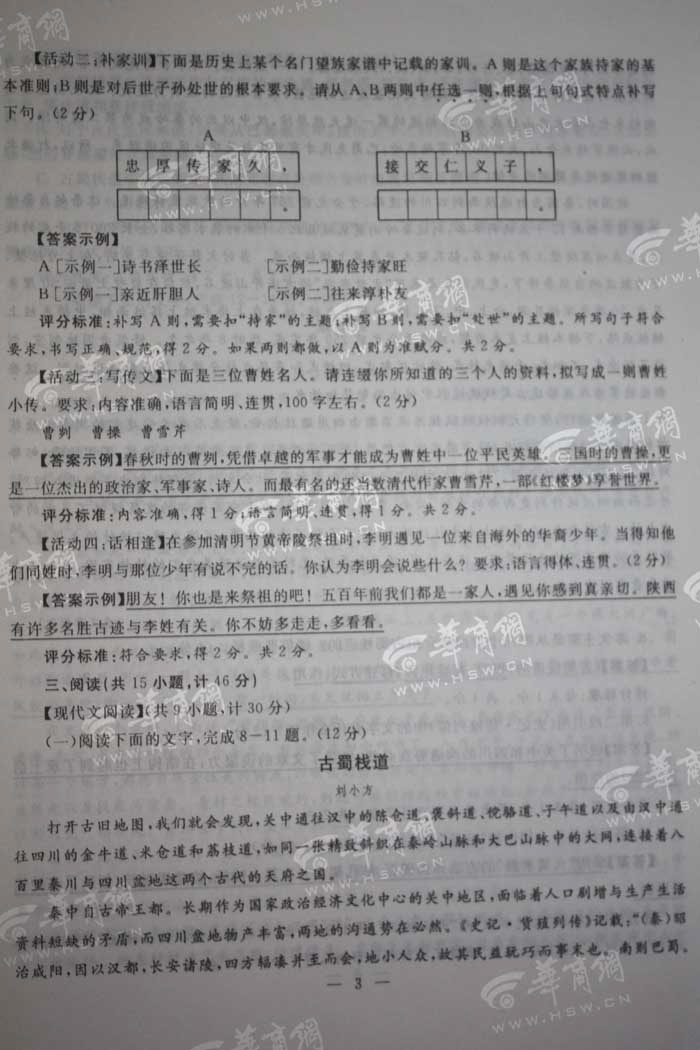 【活动二:补家训】下面是历史上某个名门望族家谱中记载的家训。A则是这个家族持家的基
本准则;B则是对后世子孙处世的根本要求。请从A、B两则中任选一则,根据上句句式特点补写
下句。(2分)
A B
忠厚传家久, 接交仁义子,
。 。
【答案示例】
A[示例一]诗书泽世长 [示例二]勤俭持家旺
B[示例一]亲近肝胆人 [示例二]往来淳朴友
评分标准:补写A则,需要扣“持家”的主题;补写B则,需要扣“处世”的主题。所写句子符合
要求,书写正确、规范,得2分。如果两则都做,以A则为准赋分。共2分。
【活动三:写传文】下面是三位曹姓名人。请连缀你所知道的三个人的资料,拟写成一则曹姓
小传。要求:内容准确,语言简明、连贯,100字左右。(2分)
曹刿 曹操 曹雪芹
【答案示例】春秋时的曹刿,凭借卓越的军事才能成为曹姓中一位平民英雄。三国时的曹操,更
是一位杰出的政治家、军事家、诗人。而最有名的还当数清代作家曹雪芹,一部《红楼梦》享誉世界。
评分标准:内容准确,得1分;语言简明、连贯,得1分。共2分。
【活动四:话相逢】在参加清明节黄帝陵祭祖时,李明遇见一位来自海外的华裔少年。当得知他
们同姓时,李明与那位少年有说不完的话。你认为李明会说些什么?要求:语言得体、连贯。(2分)
【答案示例】朋友!你也是来祭祖的吧!五百年前我们都是一家人,遇见你感到真亲切。陕西
有许多名胜古迹与李姓有关。你不妨多走走,多看看。
评分标准:符合要求,得2分。共2分。
三、阅读(共15小题,计46分)
【现代文阅读】(共9小题,计30分)
(一)阅读下面的文字,完成8—11题。(12分)
古蜀栈道
刘小方
打开古旧地图,我们就会发现,关中通往汉中的陈仓道、褒斜道、傥骆道、子午道以及由汉中通
往四川的金牛道、米仓道和荔枝道,如同一张精致斜织在秦岭山脉和大巴山脉中的大网,连接着八
百里秦川与四川盆地这两个古代的天府之国。
秦中自古帝王都。长期作为国家政治经济文化中心的关中地区,面临着人口剧增与生产生活
资料短缺的矛盾,而四川盆地物产丰富,两地的沟通势在必然。《史记·货殖列传》记载:“(秦)昭
治咸阳,因以汉都,长安诸陵,四方辐凑并至而会,地小人众,故其民益玩巧而事末也。南则巴蜀。
— 3 —
华商网
WWW.HSW.CN